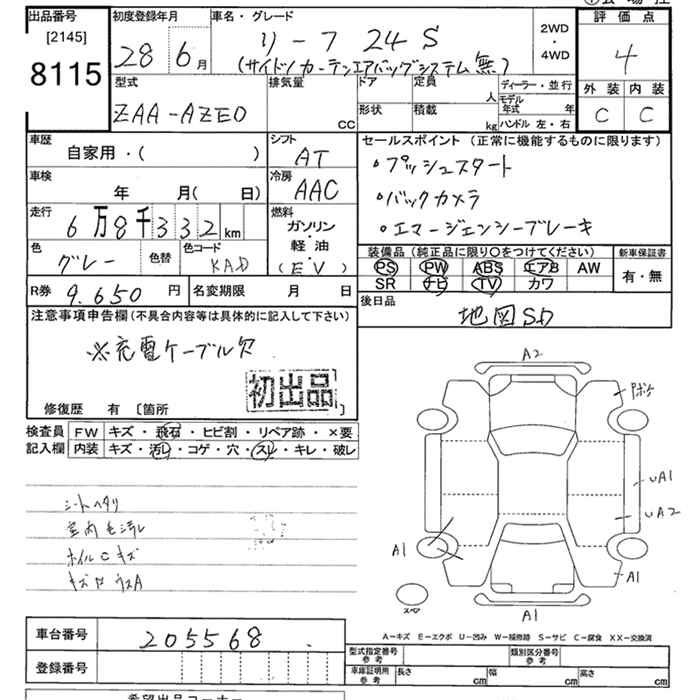 出品番号 初度登録年月 車名・グレード
[2145] 28年 6月 リーフ 24S 2WD・4WD 評価点
8115 (サイド/カーテンエアバッグシステム無) 4
型式 排気量 ドア 定員 ディーラー・並行 外装 内装
ZAA-AZE0 cc 形状 積載 人 kg モデル年式 年 C C
ハンドル 左・右
車歴 シフト セールスポイント (正常に機能するものに限ります)
自家用・( ) AT ・プッシュスタート
車検 冷房
年 月( 日) AAC ・バックカメラ
走行 燃料
6万8千332km ガソリン・軽油 ・エマージェンシーブレーキ
色 色替 色コード (EV) 装備品(純正品に限り○をつけてください) 新車保証書
グレー KAD PS PW ABS エアB AW 有・無
R券 9.650円 名変期限 月 日 SR ナビ TV カワ
注意事項申告欄(不具合内容等は具体的に記入して下さい) 後日品
地図SD
※充電ケーブル欠
初出品
修復歴 有 [箇所 ]
検査員 FW キズ・飛石・ヒビ割・リペア跡・×要
記入欄 内装 キズ・汚レ・コゲ・穴・スレ・キレ・破レ
A2
シートヘタリ
室内モヨゴレ
ホイルCキズ
UA1
UA2
A1
A1
スペア
A1
A―キズ E―エクボ U―凹み W―補修跡 S―サビ C―腐食 XX―交換済
車台番号 205568
登録番号
型式指定番号 参考 類別区分番号 参考
車庫証明用 参考 長さ cm 幅 cm 高さ cm
希望出品コーナー